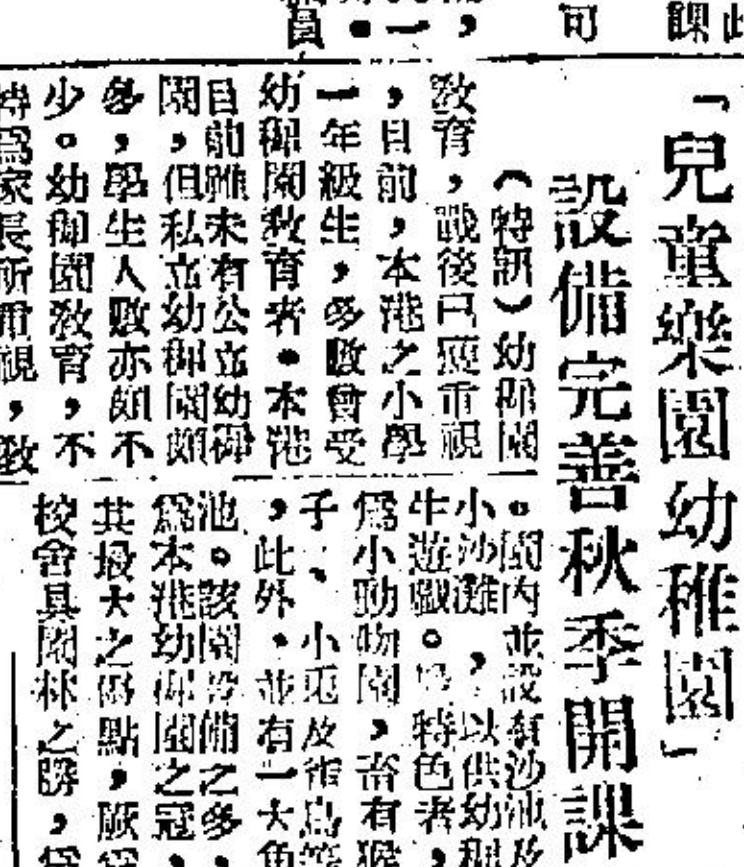 「兒童樂園幼稚園」
設備完善秋季開課
（特訊）幼稚園
教育，戰後已極重視
，目前，本港之小學
一年級生，多數曾受
幼稚園教育者。本港
目前雖未有公立幼稚
園，但私立幼稚園頗
多，學生人數亦頗不
少。幼稚園教育，不
特爲家長所重視，教
。園內並設有沙池及
小沙灘，以供幼稚
生遊戲。特色者，
爲小動物園，畜有猴
子、小兎及雀鳥等
，此外，並有一大魚
池。該園設備之多，
爲本港幼稚園之冠，
其最大之優點，厥爲
校舍具園林之勝，